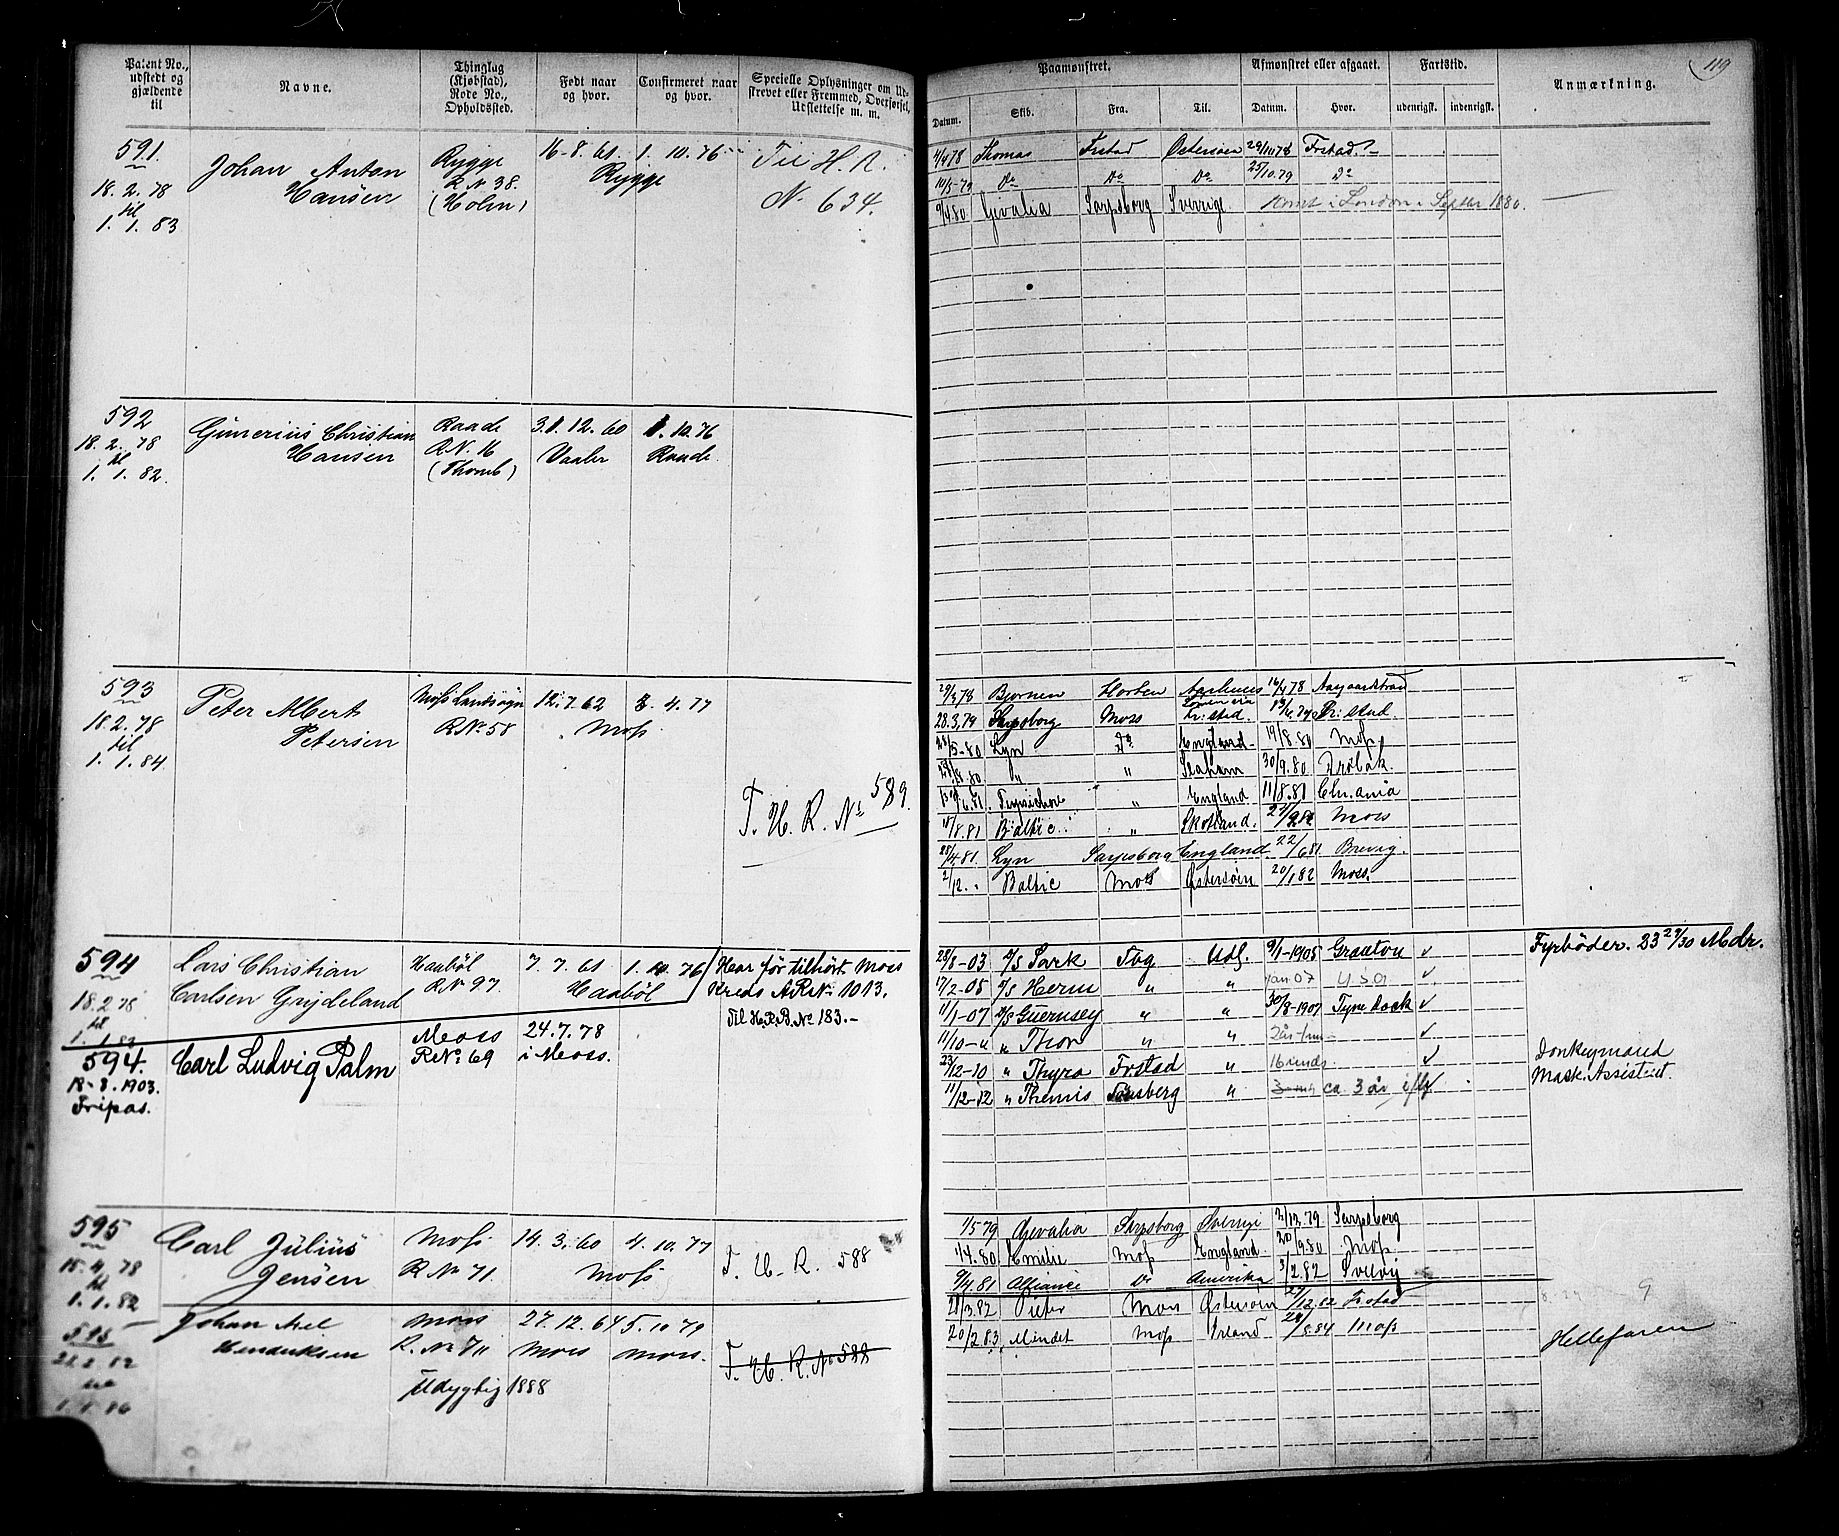 119
Patent No., udstedt og gjældende til
Navne.
Thinglag (Kjøbstad), Rode No., Opholdssted.
Født naar og hvor.
Confirmeret naar og hvor.
Specielle Oplysninger om Udstrevet eller Fremmed, Overførsel, Udslettelse m. m.
Paamønstret.
Afmønstret eller afgaaet.
Fartstid.
Anmærkning.
Datum. Skib. Fra. Til. Datum. Hvor. udenrigsk. indenrigsk.
591. Johan Anton Rygge 16-8.61 1.10.76 Til H. R.
18.2.78 Hansen R N 38. Rygge N. 634.
til (Holm)
1.1.83
4/4 78 Thomas Frstad Østersøen 29/10 78 Frstad.
Do Do Do 25/10.79 Do
9/4 80 Gevalia Sarpsborg Sverige Rømt i London i Septbr 1880.
592 Gunerius Christian Raade 31.12.60 1.10.76
18.2.78 Hansen R.N. 16 Vaaler Raade.
til (Thomb)
1.1.82.
593 Peter Albert Moss Landsogn 12.7.62 3.4.77
18.2.78 Petersen R No 58 Moss
til
1.1.84.
T. H. R. No 589.
29/3 78 Bjørnen Horten Aarhuus 16/4 78 Aasgaardstrand
28.3.79 Sarpsborg Moss Fr:stad. Fr:stad
Lyn Do England 19/8.80 Moss
" " Seaham 30/9.80 Drøbak.
" England 11/8.81 Chr.ania
Baltic " Skotland. Moss
25/4.81. Lyn Sarpsborg England. 22/6 81 Brevig.
2/12. " Baltic Moss Østersøen 20/1 82 Moss.
594 Lars Christian Haabøl 7.7.61 1.10.76 Har før tilhørt Moss
18.2.78 Carlsen Grydeland R No 97. Haabøl Kreds A R No 1013.
til
1.1.83
Til H.R.B. No 183.-
594. Carl Ludvig Palm Moss 24.7.78
18-8.1903. R No 69 i Moss.
Fripas.
28/8-03 D/S Sark Tbg Udl. 9/1-1905 Graxton ✓ Fyrbøder. 23 29/30 Mdr.
17/2-05 D/S Herm " " jan 07 USA ✓
11/1-07 D/S Guernsey " " 30/8-1907 Tyne Dock ✓
11/10-" " Thor " " ✓
23/12-10 " Thyra Frstad " 16 mds. ✓ Donkeymand
11/12-12 " Themis Tønsberg " ca. 3 år Mask. Assistent.
595 Carl Julius Moss 14.3.60 4.10.77
15.4.78 Jensen R No 71. Moss
til
1.1.82
T. H. R. 588
1/5 79 Gevalia Sarpsborg Sverige 2/12.79 Sarpsborg
1/4.80 Emilie Moss England Moss
9/4 81 Alliance Do Amerika 3/2.82
595 Johan Axel Moss 27.12.64 5.10.79
Hendriksen R. No 711 Moss Moss.
T. H. R. No 588
Udygtig 1888
28/3.82 Pieter Moss Østersøen Frstad
20/2 83. Mindet Moss Irland Moss
Hellefaren